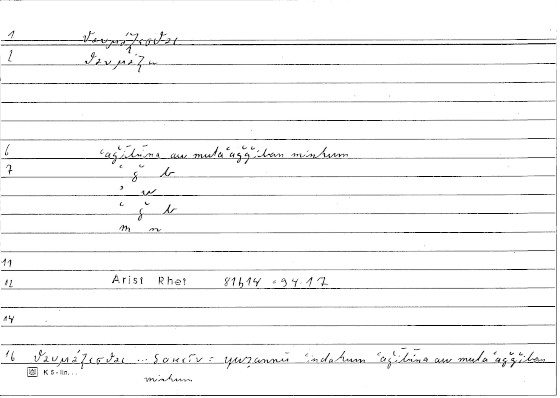 1 θαυμάζεσθαι
2 θαυμάζω
6 ʿaǧībūna au mutaʿaǧǧiban minhum
7 ʿ ǧ b
ʾ w
ʿ ǧ b
m n
11
12 Arist Rhet 81b14 = 94.17
14
16 θαυμάζεσθαι ... δοκεῖν = yuẓannū ʿindahum ʿaǧībūna au mutaʿaǧǧiban
minhum